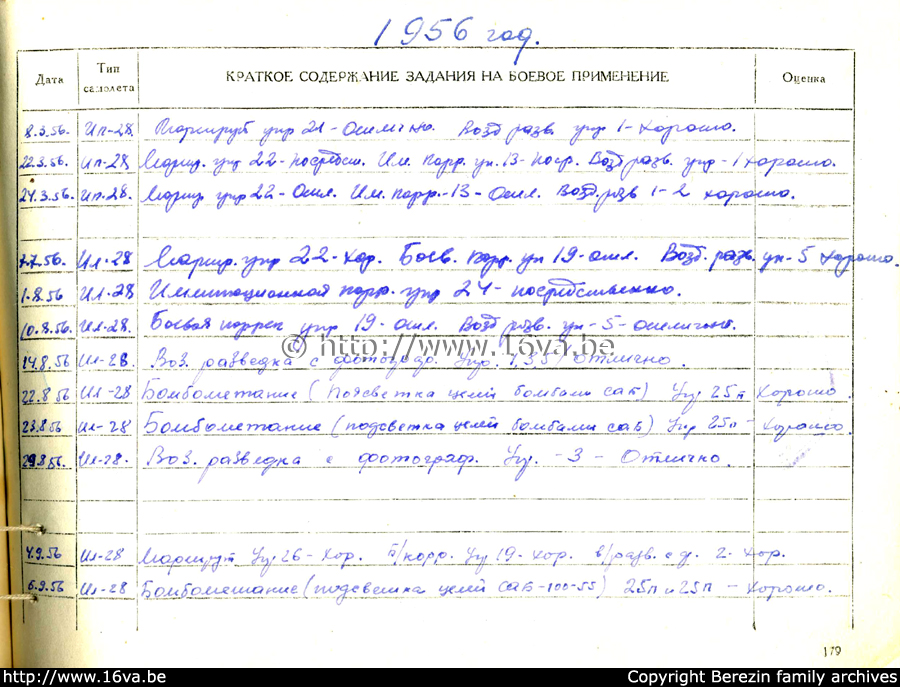 1956 год.
Дата Тип самолета КРАТКОЕ СОДЕРЖАНИЕ ЗАДАНИЯ НА БОЕВОЕ ПРИМЕНЕНИЕ Оценка
8.3.56. Ил-28 Маршрут упр 21-Отлично. Возд разв. упр 1-Хорошо.
22.3.56. Ил-28 Марш. упр 22-посредств. Им. корр. уп. 13-поср. Возд разв. упр-1 хорошо.
24.3.56. Ил-28. Марш упр 22-Отл. Им. корр.-13-Отл. Возд разв 1-2 хорошо.
56. Ил-28 Марш. упр 22-хор. Боев. корр. уп 19-отл. Возд. разв. уп-5 Хорошо.
1.8.56 Ил-28 Имитационной корр. упр 24-посредственно.
10.8.56. Ил-28. Боевая коррек упр 19-отл. Возд разв. уп-5-отлично.
14.8.56 Ил-28. Воз. разведка с Упр. Отлично
© http://www.16va.be
22.8.56 Ил-28 Бомбометание (Подсветка целей бомбами саб) Упр 25п Хорошо.
23.8.56 Ил-28 Бомбометание (подсветка целей бомбами саб) Упр 25п- Хорошо.
29.8.56. Ил-28. Воз. разведка с фотограф. Упр. -3- Отлично.
4.9.56 Ил-28 Маршрут Упр 26-Хор. п/корр. Упр 19-хор. в/разв. с д. 2-Хор.
6.9.56 Ил-28 Бомбометание (подсветка целей САБ-100-55) 25п и 25п - Хорошо.
179
http://www.16va.be Copyright Berezin family archives